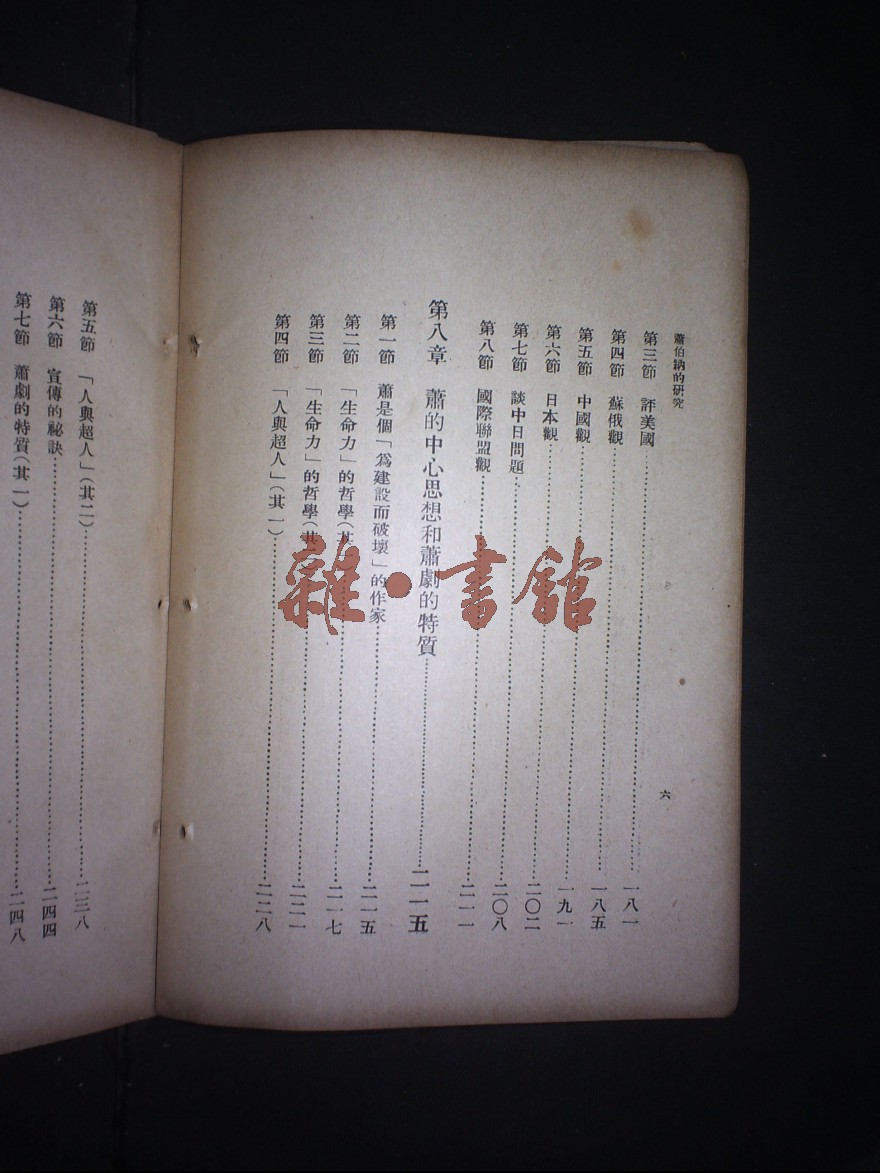 蕭伯納的研究
第三節 評美國……一八一
第四節 蘇俄觀……一八五
第五節 中國觀……一九一
第六節 日本觀……二〇二
第七節 談中日問題……二〇八
第八節 國際聯盟觀……二一一
第八章 蕭的中心思想和蕭劇的特質……二一五
第一節 蕭是個「爲建設而破壞」的作家……二一五
第二節 「生命力」的哲學(其……二一七
第三節 「生命力」的哲學(其……二二一
第四節 「人與超人」(其一)……二二八
六
第五節 「人與超人」(其二)……二三八
第六節 宣傳的祕訣……二四四
第七節 蕭劇的特質(其一)……二四八
雜·書館